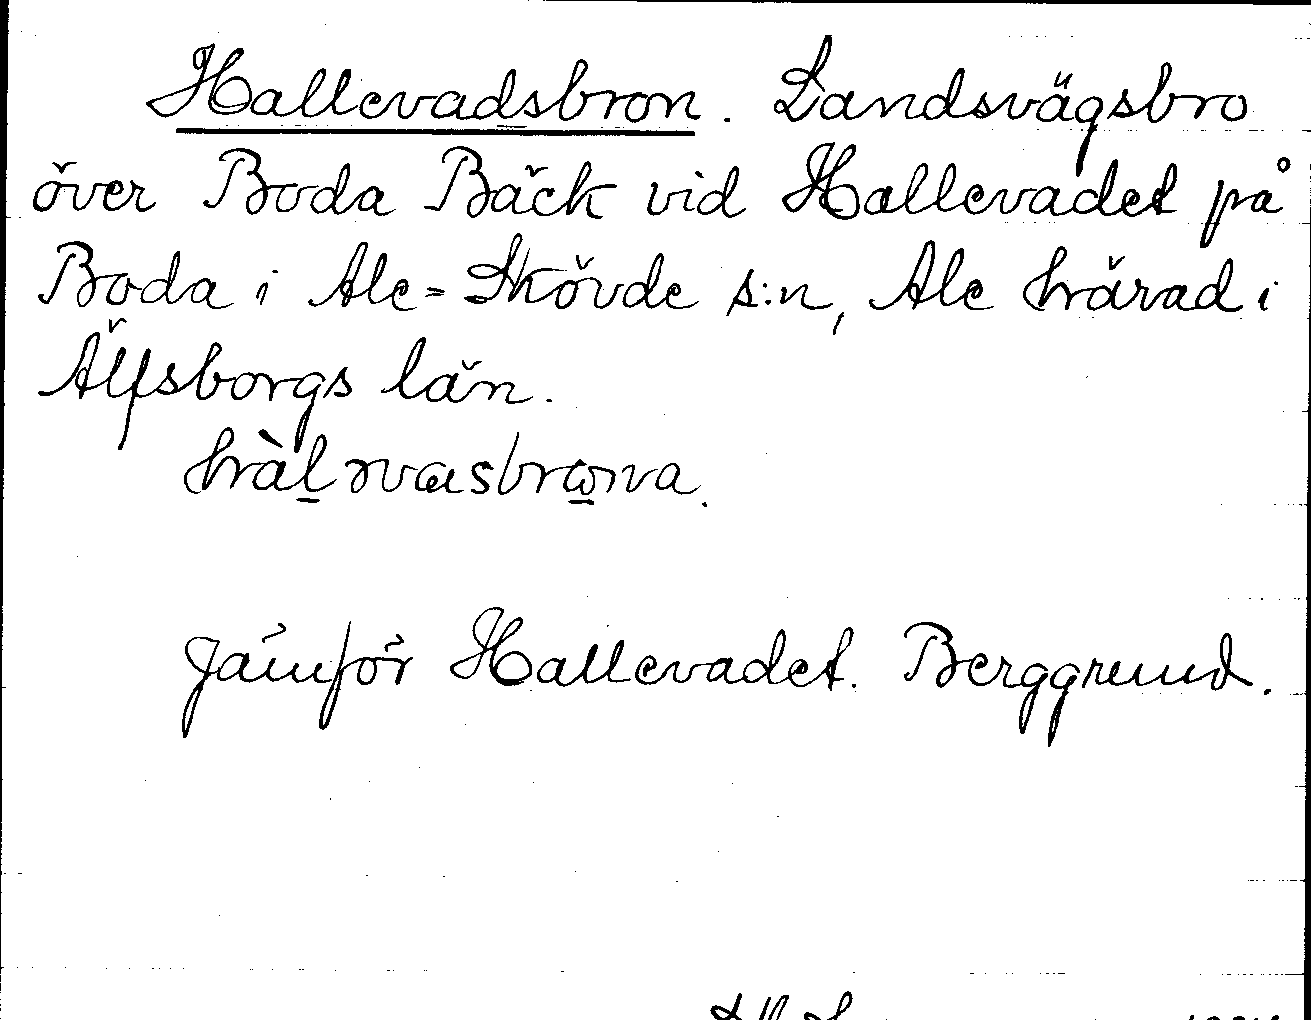 Hallevadsbron. Landsvägsbro
över Boda Bäck vid Hallevadet på
Boda i Ale-Skövde s:n, Ale härad i
Älfsborgs län.
Jämför Hallevadet. Berggrund.